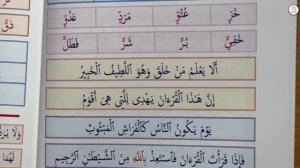 خَرَّ عُتُوٍّ مَرَدٍّ عَدُوٍّ
خَفِيٍّ بُرٍّ شَرٍّ فَطَلٌّ
أَلَا يَعْلَمُ مَنْ خَلَقَ وَهُوَ اللَّطِيفُ الْخَبِيرُ
إِنَّ هَٰذَا الْقُرْءَانَ يَهْدِي لِلَّتِي هِيَ أَقْوَمُ
يَوْمَ يَكُونُ النَّاسُ كَالْفَرَاشِ الْمَبْثُوثِ
فَإِذَا قَرَأْتَ الْقُرْءَانَ فَاسْتَعِذْ بِاللَّهِ مِنَ الشَّيْطَٰنِ الرَّجِيمِ